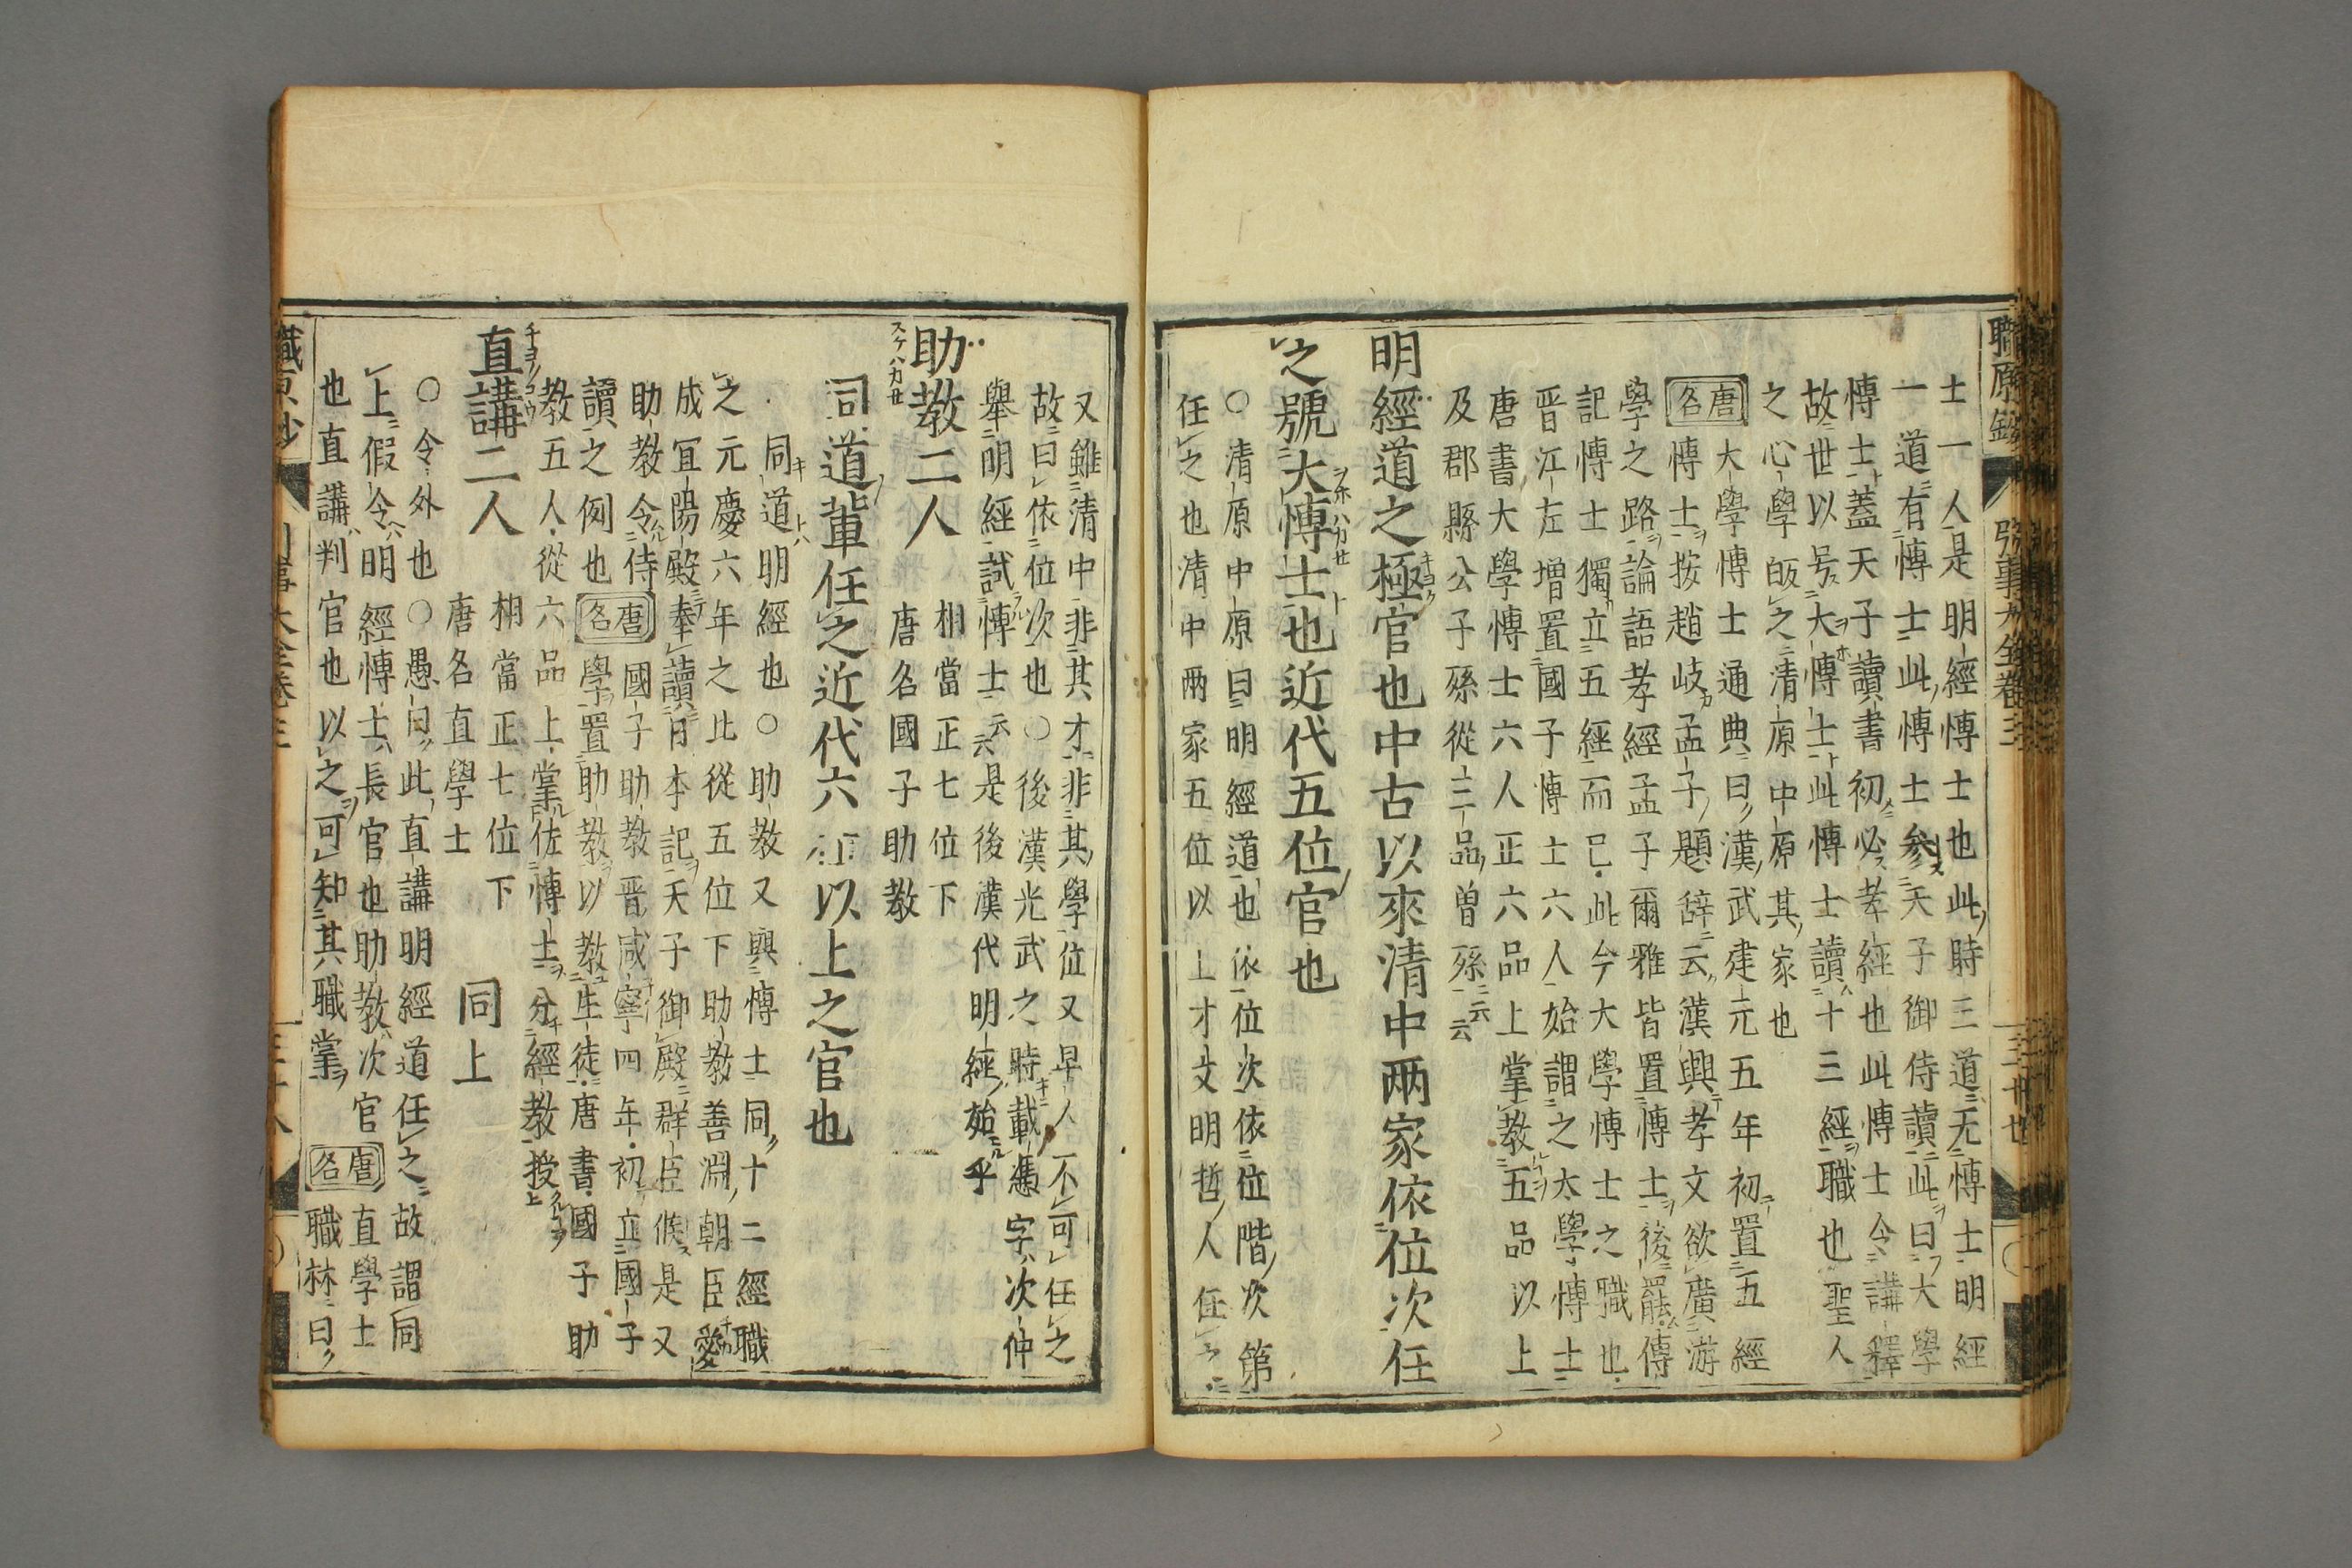 士一人是明經博士也此時三道无博士明經
一道有博士此博士參天子御侍讀此曰大學
博士蓋天子讀書初必孝經也此博士令講釋
故世以号大博士此博士讀十三經職也聖人
之心學皈之清原中原其家也
唐名 大學博士通典曰漢武建元五年初置五經
博士按趙岐孟子題辞云漢興孝文欲廣游
學之路論語孝經孟子爾雅皆置博士後罷傳
記博士獨立五經而已此今大學博士之職也
晋江左增置國子博士六人始謂之太學博士
唐書大學博士六人正六品上掌教五品以上
及郡縣公子孫從三品曽孫云云
明經道之極官也中古以來清中兩家依位次任
之號大博士也近代五位官也
○清原中原曰明經道也依位次依位階次第
任之也清中兩家五位以上才文明哲人任之
又雖清中非其才非其學位又早人不可任之
故曰依位次也○後漢光武之時載憑字次仲
舉明經試博士云云是後漢代明經始乎
助教二人 相當正七位下
唐名國子助教
同道輩任之近代六位以上之官也
同道明經也○助教又與博士同十二經職
之元慶六年之比從五位下助教善淵朝臣愛
成宜陽殿奉讀日本記天子御殿群臣候是又
助教令侍讀之例也 唐名 國子助教晋咸寧四年初立國子
學置助教以教生徒唐書國子助
教五人從六品上掌佐博士分經教授
直講二人 相當正七位下
唐名直學士 同上
○令外也○愚曰此直講明經道任之故謂同
上假令明經博士長官也助教次官
也直講判官也以之可知其職掌 唐名 直學士
職林曰